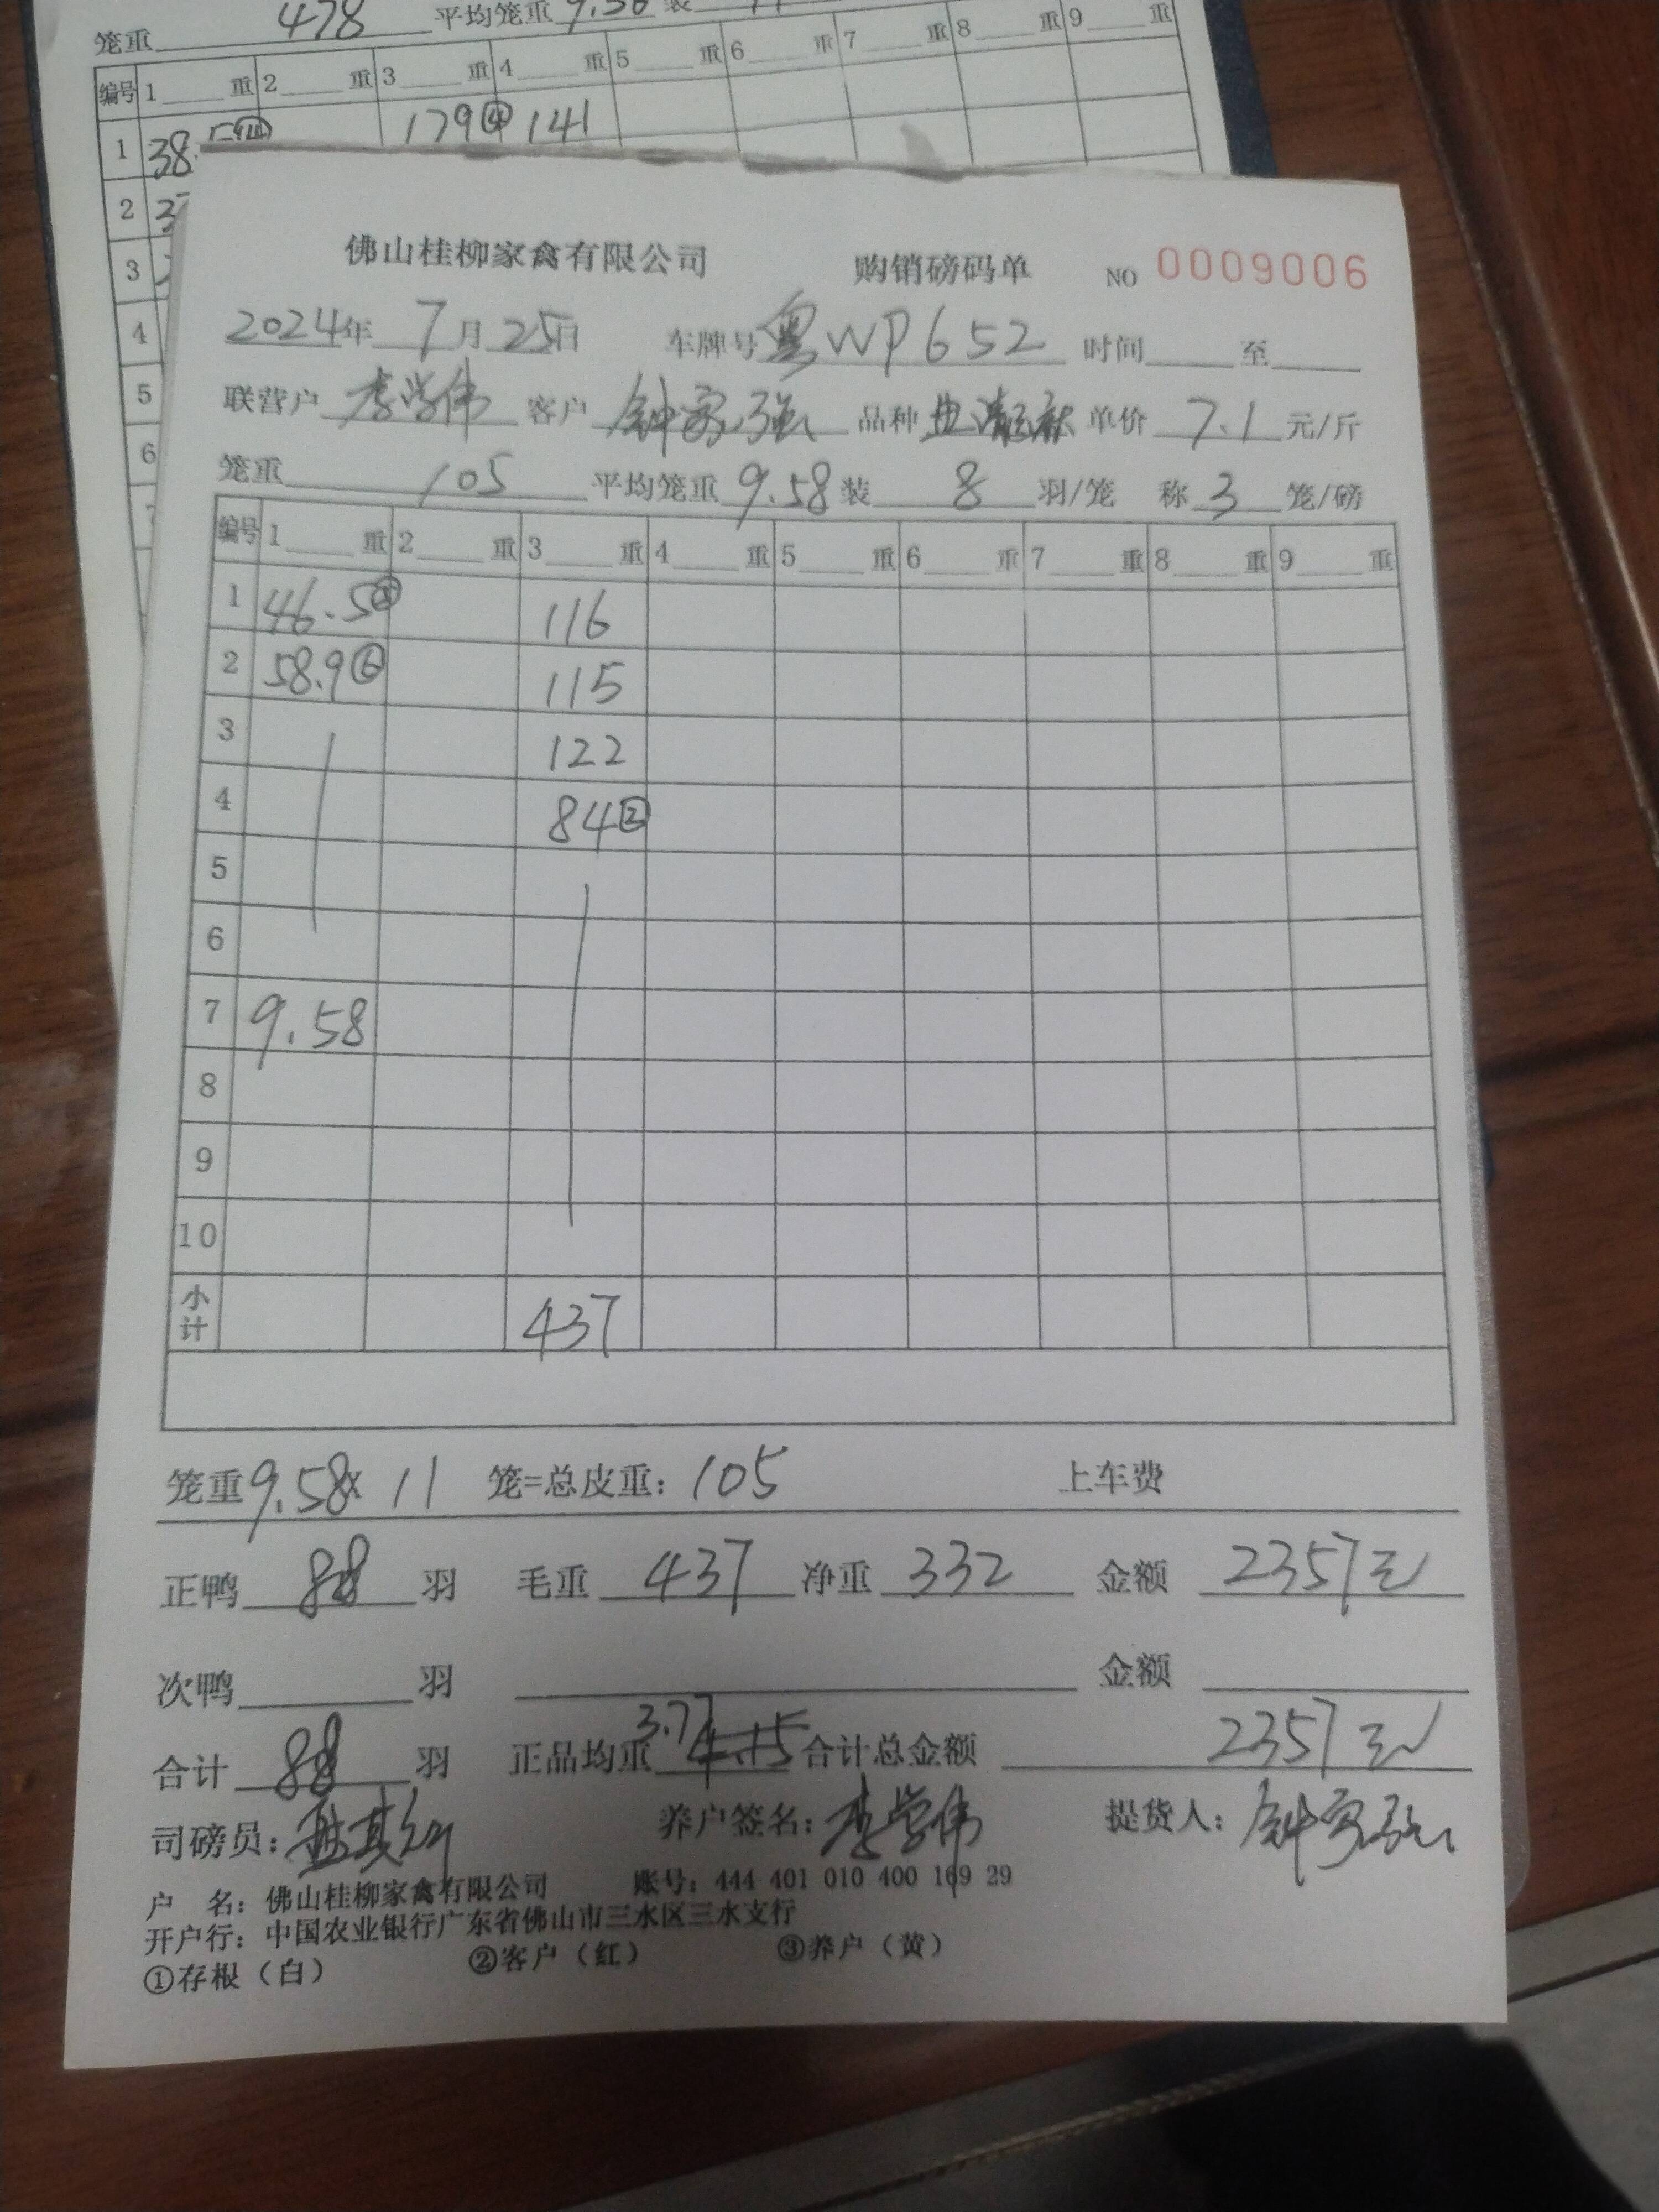 笼重 478 平均笼重 9.56 装
编号 1 重 2 重 3 重 4 重 5 重 6 重 7 重 8 重 9 重
1 38. 179④ 141
2
3
4
5
6
佛山桂柳家禽有限公司 购销磅码单 NO 0009006
2024年 7月 25日 车牌号 粤WP652 时间 至
联营户 李学伟 客户 钟家强 品种 单价 7.1 元/斤
笼重 105 平均笼重 9.58 装 8 羽/笼 称 3 笼/磅
编号 1 重 2 重 3 重 4 重 5 重 6 重 7 重 8 重 9 重
1 46.5 116
2 58.9⑥ 115
3 122
4 84②
5
6
7 9.58
8
9
10
小计 437
笼重 9.58 x 11 笼=总皮重: 105 上车费
正鸭 88 羽 毛重 437 净重 332 金额 2357元
次鸭 羽 金额
合计 88 羽 正品均重 3.77 4.15 合计总金额 2357元
司磅员: 养户签名: 李学伟 提货人: 钟家强
户 名: 佛山桂柳家禽有限公司 账号: 444 401 010 400 169 29
开户行: 中国农业银行广东省佛山市三水区三水支行
①存根（白） ②客户（红） ③养户（黄）